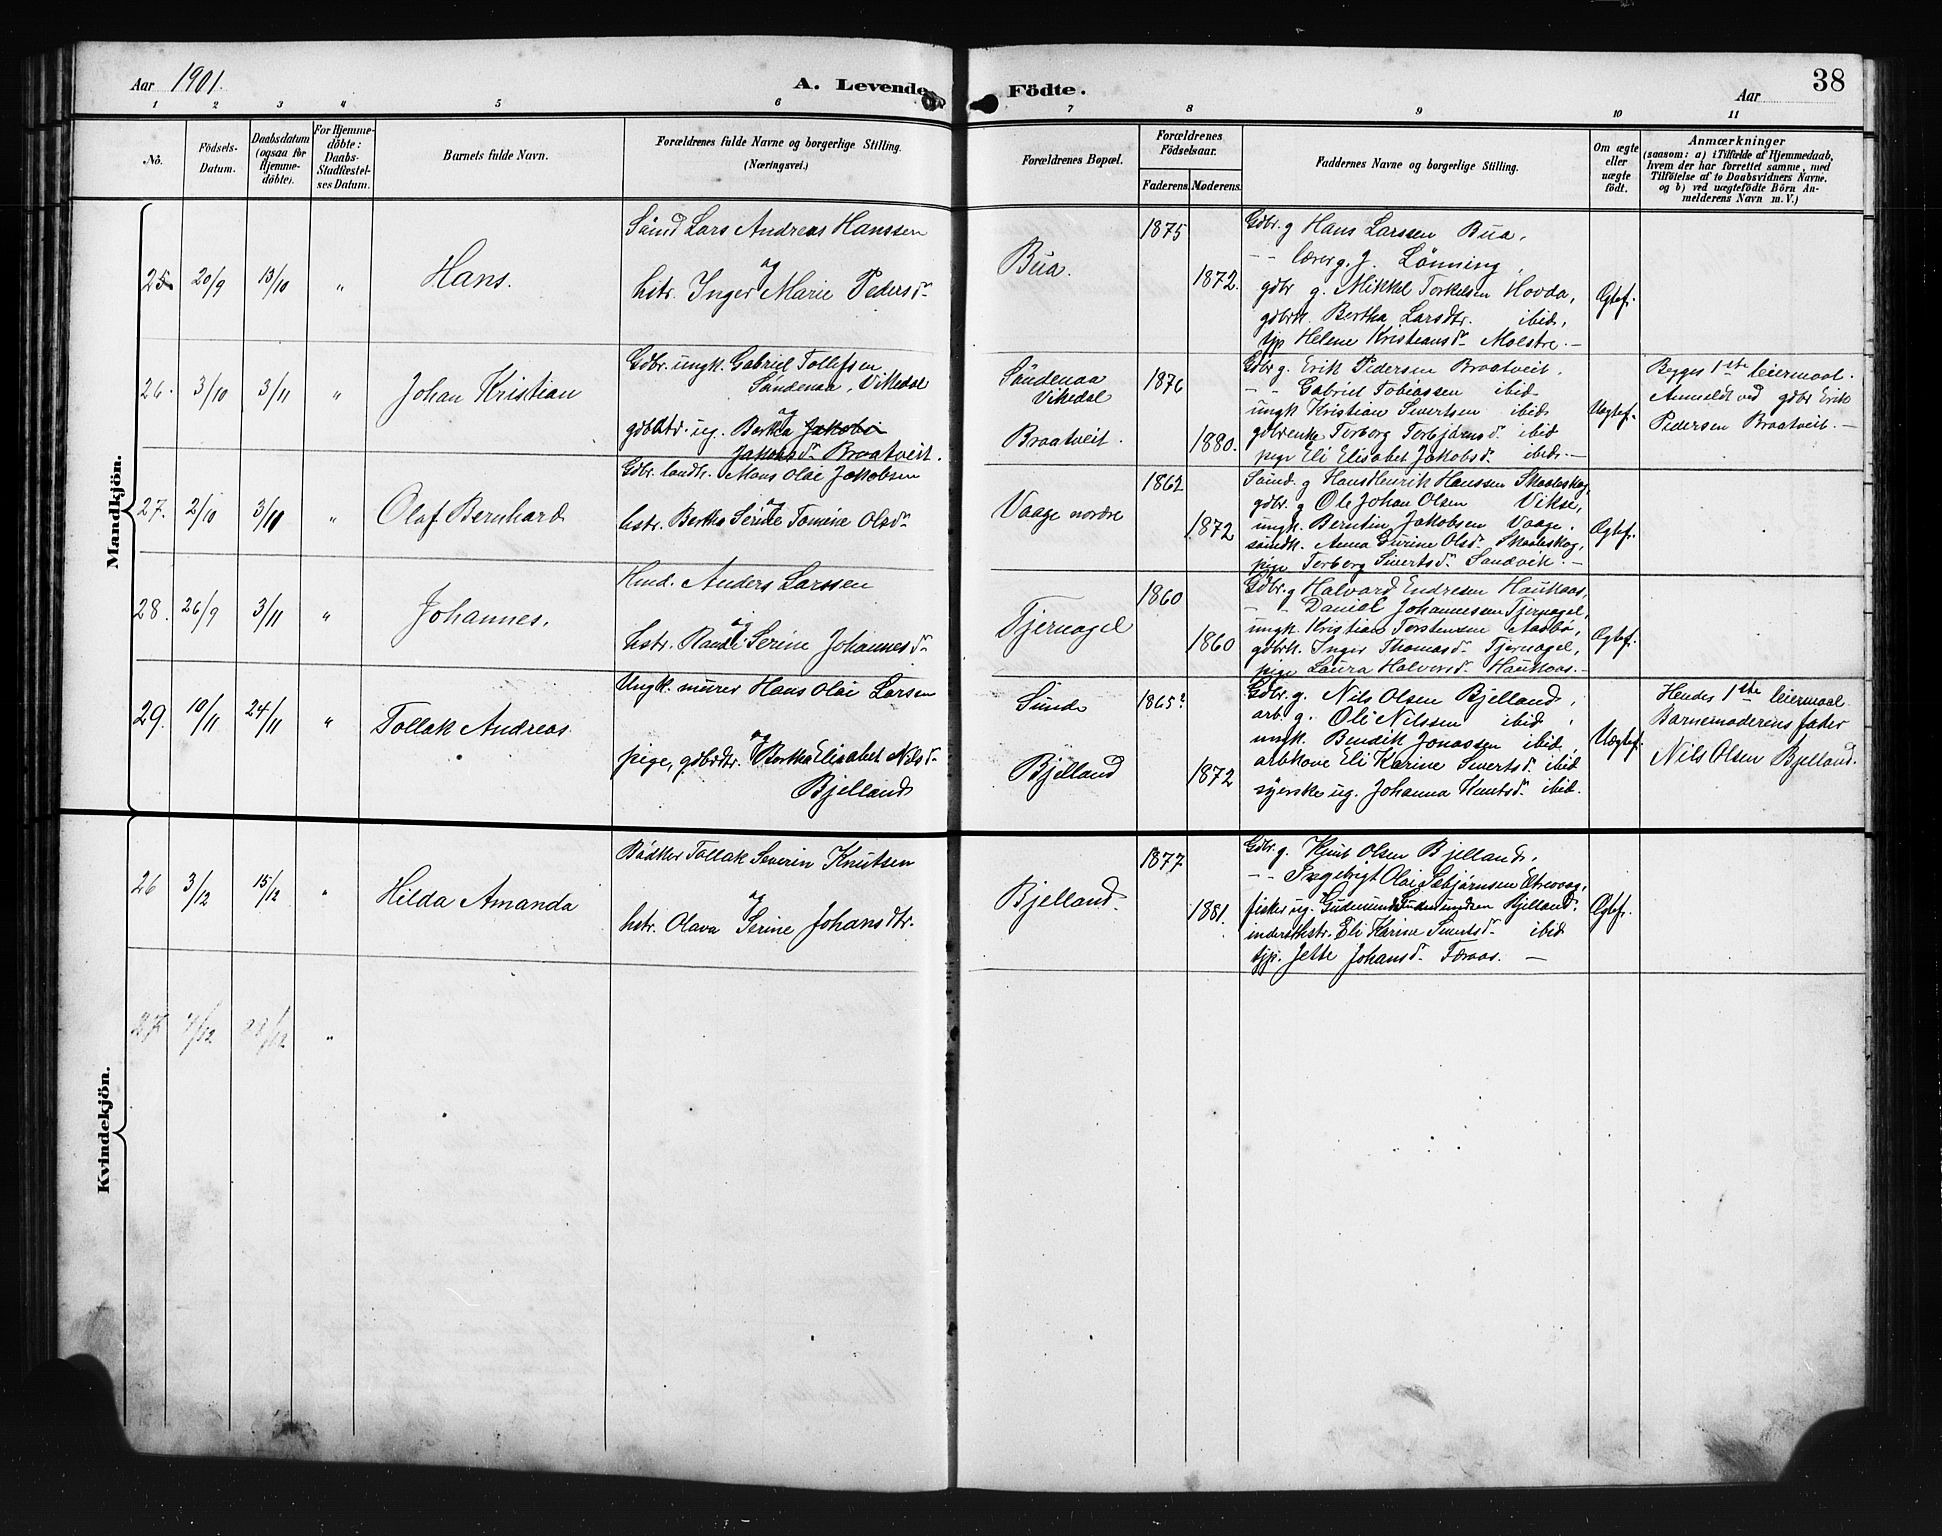 Aar 1901.
A. Levende Födte.
Aar
38
1 2 3 4 5 6 7 8 9 10 11
No.
Födsels-
Datum.
Daabsdatum
(ogsaa for
Hjemme-
döbte).
For Hjemme-
döbte:
Daabs-
Stadfæstel-
ses Datum.
Barnets fulde Navn.
Forældrenes fulde Navne og borgerlige Stilling.
(Næringsvei.)
Forældrenes Bopæl.
Forældrenes
Födselsaar.
Faderens. Moderens.
Faddernes Navne og borgerlige Stilling.
Om ægte
eller
uægte
födt.
Anmærkninger
(saasom: a) i Tilfælde af Hjemmedaab,
hvem der har forrettet samme, med
Tilföielse af to Daabsvidners Navne,
og b) ved uægtefödte Börn An-
melderens Navn m. V.)
Mandkjön.
25 20/9 13/10 "
Hans.
Lars Andreas Hanssen
og
hstr. Inger Marie Pedersd.
Bua.
1875
1872.
Gdbr. g Hans Larssen Bua,
- - lærer g. J. Lönning,
gdbr g. Mikkel Torkelsen Hovda,
gdbrk. Bertha Larsdtr. ibid,
tjp Helene Kristiansd. Molstre. -
Ægtef.
26. 3/10 3/11 "
Johan Kristian
Gdbr. ungk. Gabriel Tollefsen
Söndenaa, Vikedal
og
ug. Bertha Jakobs
Jakobsd. Braatveit.
Söndenaa
Vikedal
Braatveit.
1876
1880.
Gdbr g. Erik Pedersen Braatveit,
- - Gabriel Tobiassen ibid
ungk Kristian Sivertsen ibid
gdbrenke Torborg Torbjörnsd. ibid
pige Eli Elisabet Jakobsd. ibid. -
Uægtef.
Begges 1ste leiermaal.
Anmeldt ved gdbr Erik
Pedersen Braatveit. -
27. 2/10 3/11 "
Olaf Bernhard
Gdbr. landh. Mons Olai Jakobsen
og
hstr. Bertha Serine Tomine Olsd.
Vaage nordre
1862
1872
g Hans Henrik Hanssen Skaaleskog,
gdbr. g Ole Johan Olsen Vikse,
ungk. Berntin Jakobsen Vaage.
Anna Gurine Olsd. Skaaleskog,
pige Torborg Sivertsd. Sandvik. -
Ægtef.
28. 26/9 3/11 "
Johannes.
Hmd. Anders Larssen
og
hstr. Randi Serine Johannesd.
Tjernagel
1860
1860
Gdbr. g Halvard Endresen Haukaas,
- - Daniel Johannesen Tjernagel,
ungk. Kristian Torstensen Aadbö,
gdbrk. Inger Thomasd. Tjernagel,
pige Laura Halvorsd. Haukaas. -
Ægtef.
29. 10/11 24/11 "
Tollak Andreas
Ungk. murer Hans Olai Larsen
og
pige, gdbrdtr. Bertha Elisabet Nilsd.
Bjelland
Sunde
Bjelland
1865?
1872
Gdbr. g. Nils Olsen Bjelland,
arb g. Ole Nilssen ibid,
ungk. Bendik Jonassen ibid,
arbkone Eli Karine Sivertsd. ibid
syerske ug. Johanna Knutsd. ibid.
Uægtef.
Hendes 1ste leiermaal.
Barnemoderens fader
Nils Olsen Bjelland.
Kvindekjön.
26 3/12 15/12 "
Hilda Amanda
Bödker Tollak Severin Knutsen
og
hstr. Olava Serine Johansdtr.
Bjelland.
1877
1881.
Gdbr. g. Knut Olsen Bjelland,
- - Ingebrigt Olai Asbjörnsen
fisker ug. Gudmund Gudmundsen Bjelland.
Eli Karine Sivertsd. ibid
tjp. Jette Johansd. Færaas. -
Ægtef.
27 /12 /12 "